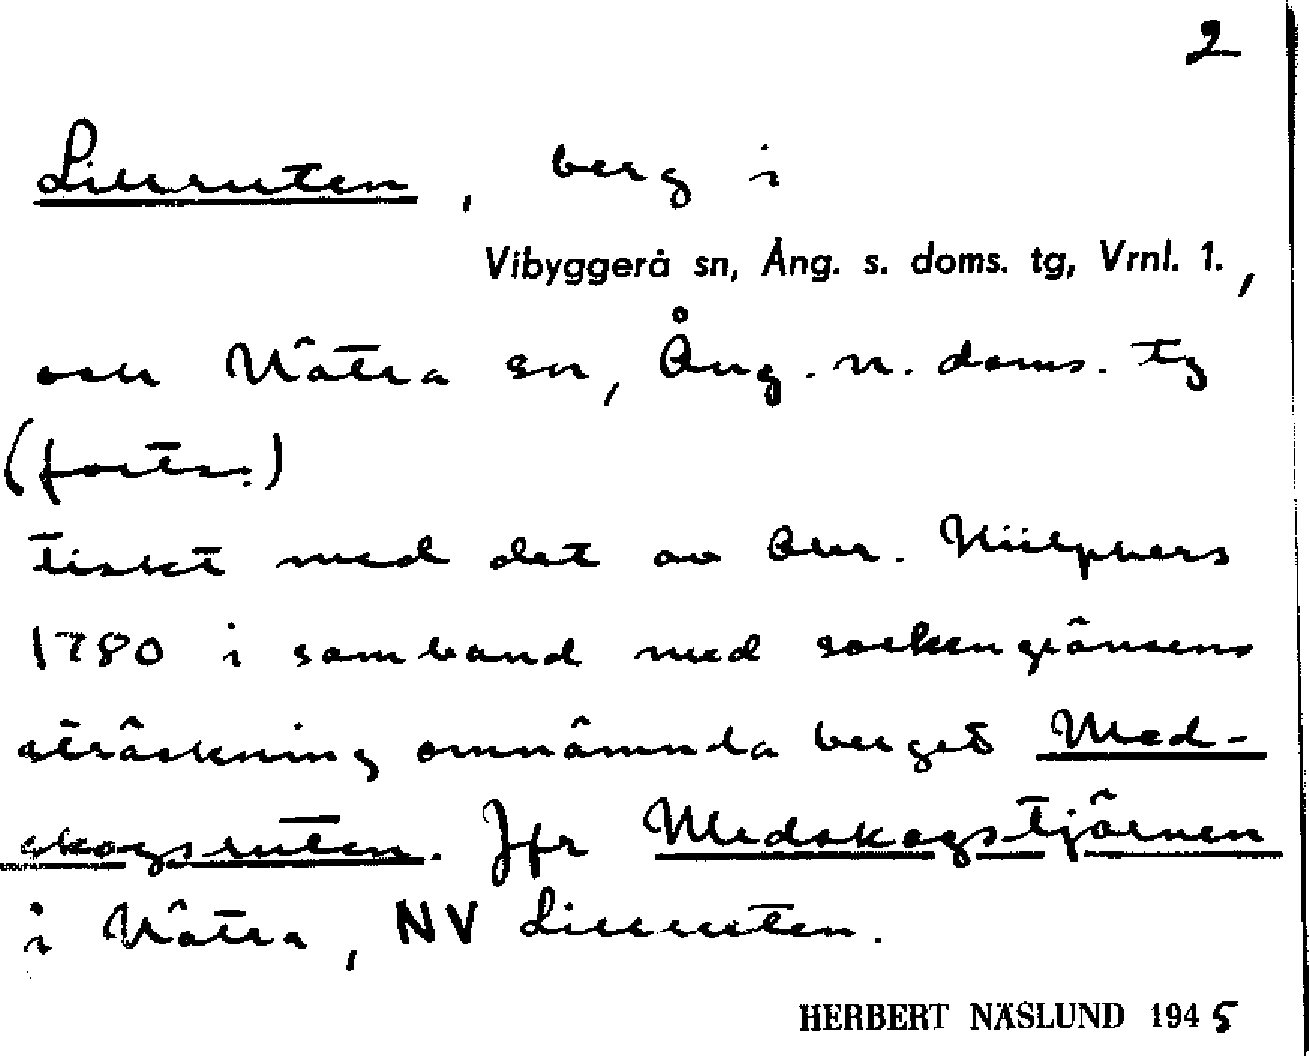 2
Lillruten, berg i
Vibyggerå sn, Ång. s. doms. tg, Vrnl. 1.,
och Nätra sn, Ång. n. doms. tg
(forts.)
tiskt med det av Abr. Hülphers
1780 i samband med sockengränsens
sträckning omnämnda berget Med-
skogsruten. Jfr Medskogstjärnen
i Nätra, NV Lillruten.
HERBERT NÄSLUND 1945